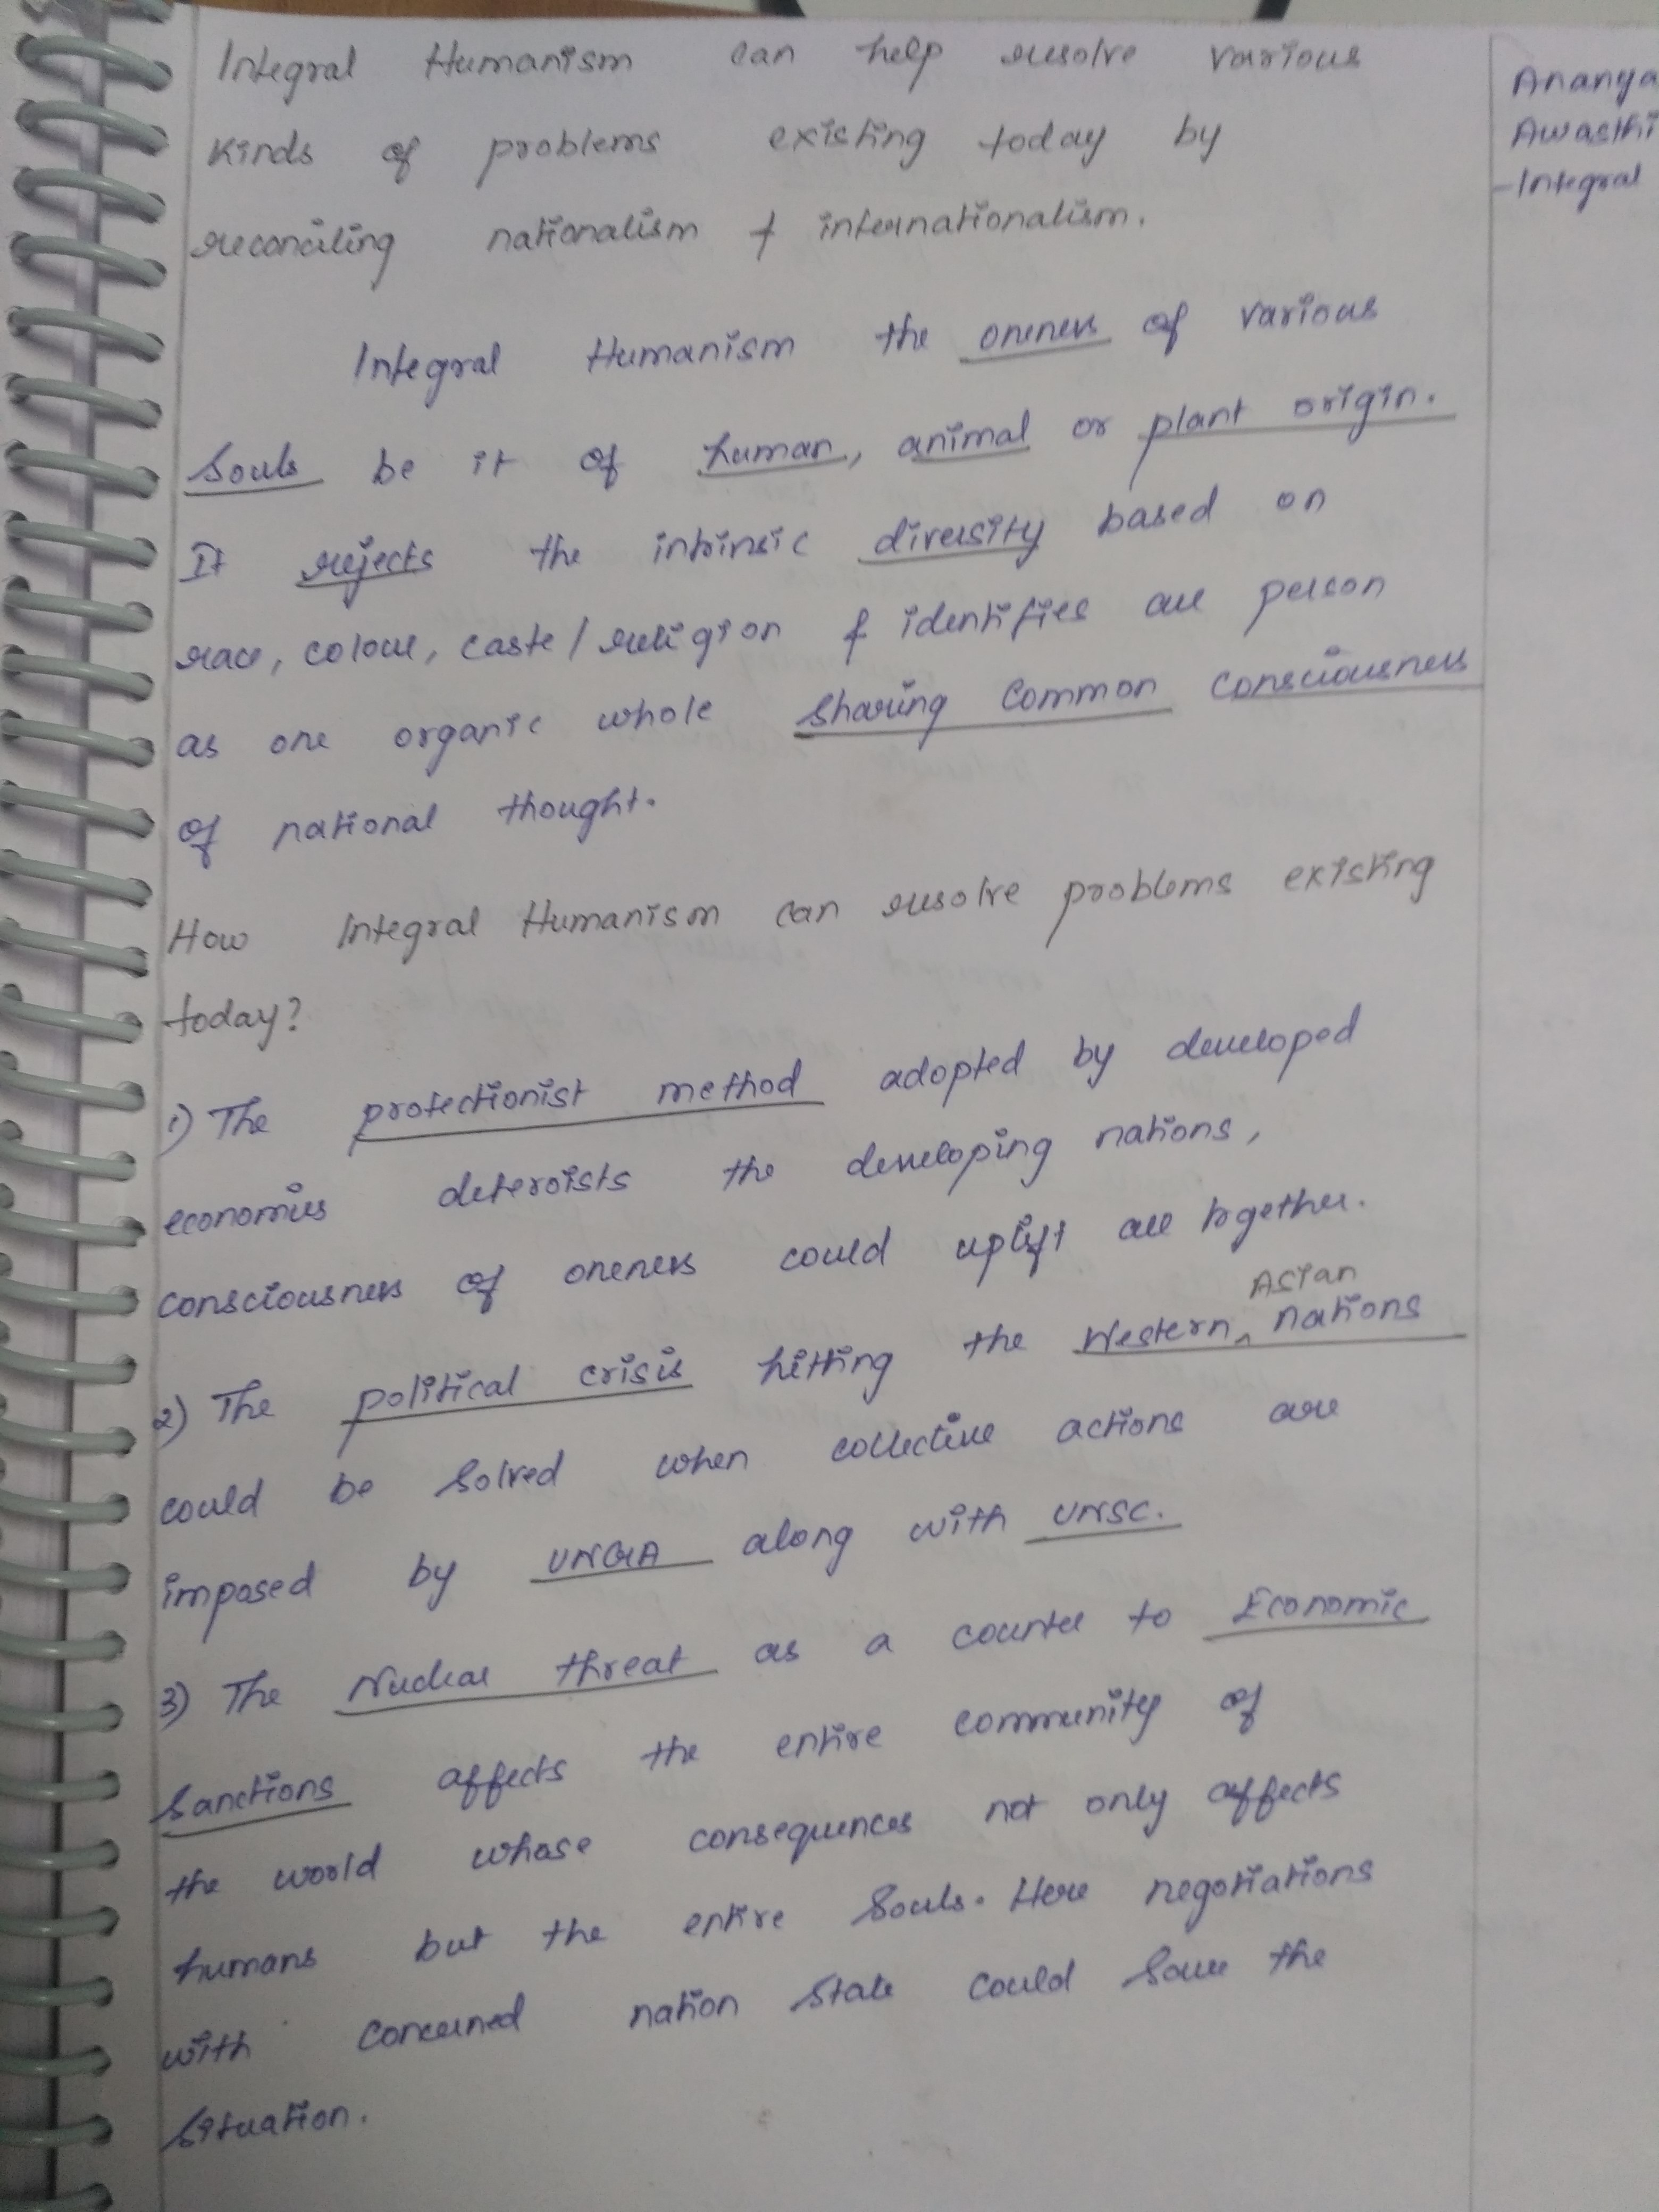 Integral Humanism can help resolve various
kinds of problems existing today by
reconciling nationalism & internationalism.
Integral Humanism the oneness of various
Souls be it of human, animal or plant origin.
It rejects the intrinsic diversity based on
race, colour, caste/religion & identifies all person
as one organic whole sharing common consciousness
of national thought.
How Integral Humanism can resolve problems existing
today?
1) The protectionist method adopted by developed
economies deteroists the developing nations,
consciousness of oneness could uplift all together.
Asian
2) The political crisis hitting the Western ^ nations
could be solved when collective actions are
imposed by UNGA along with UNSC.
3) The Nuclear threat as a counter to Economic
Sanctions affects the entire community of
the world whose consequences not only affects
humans but the entire Souls. Here negotiations
with concerned nation state could save the
situation.
Ananya
Awasthi
-Integral